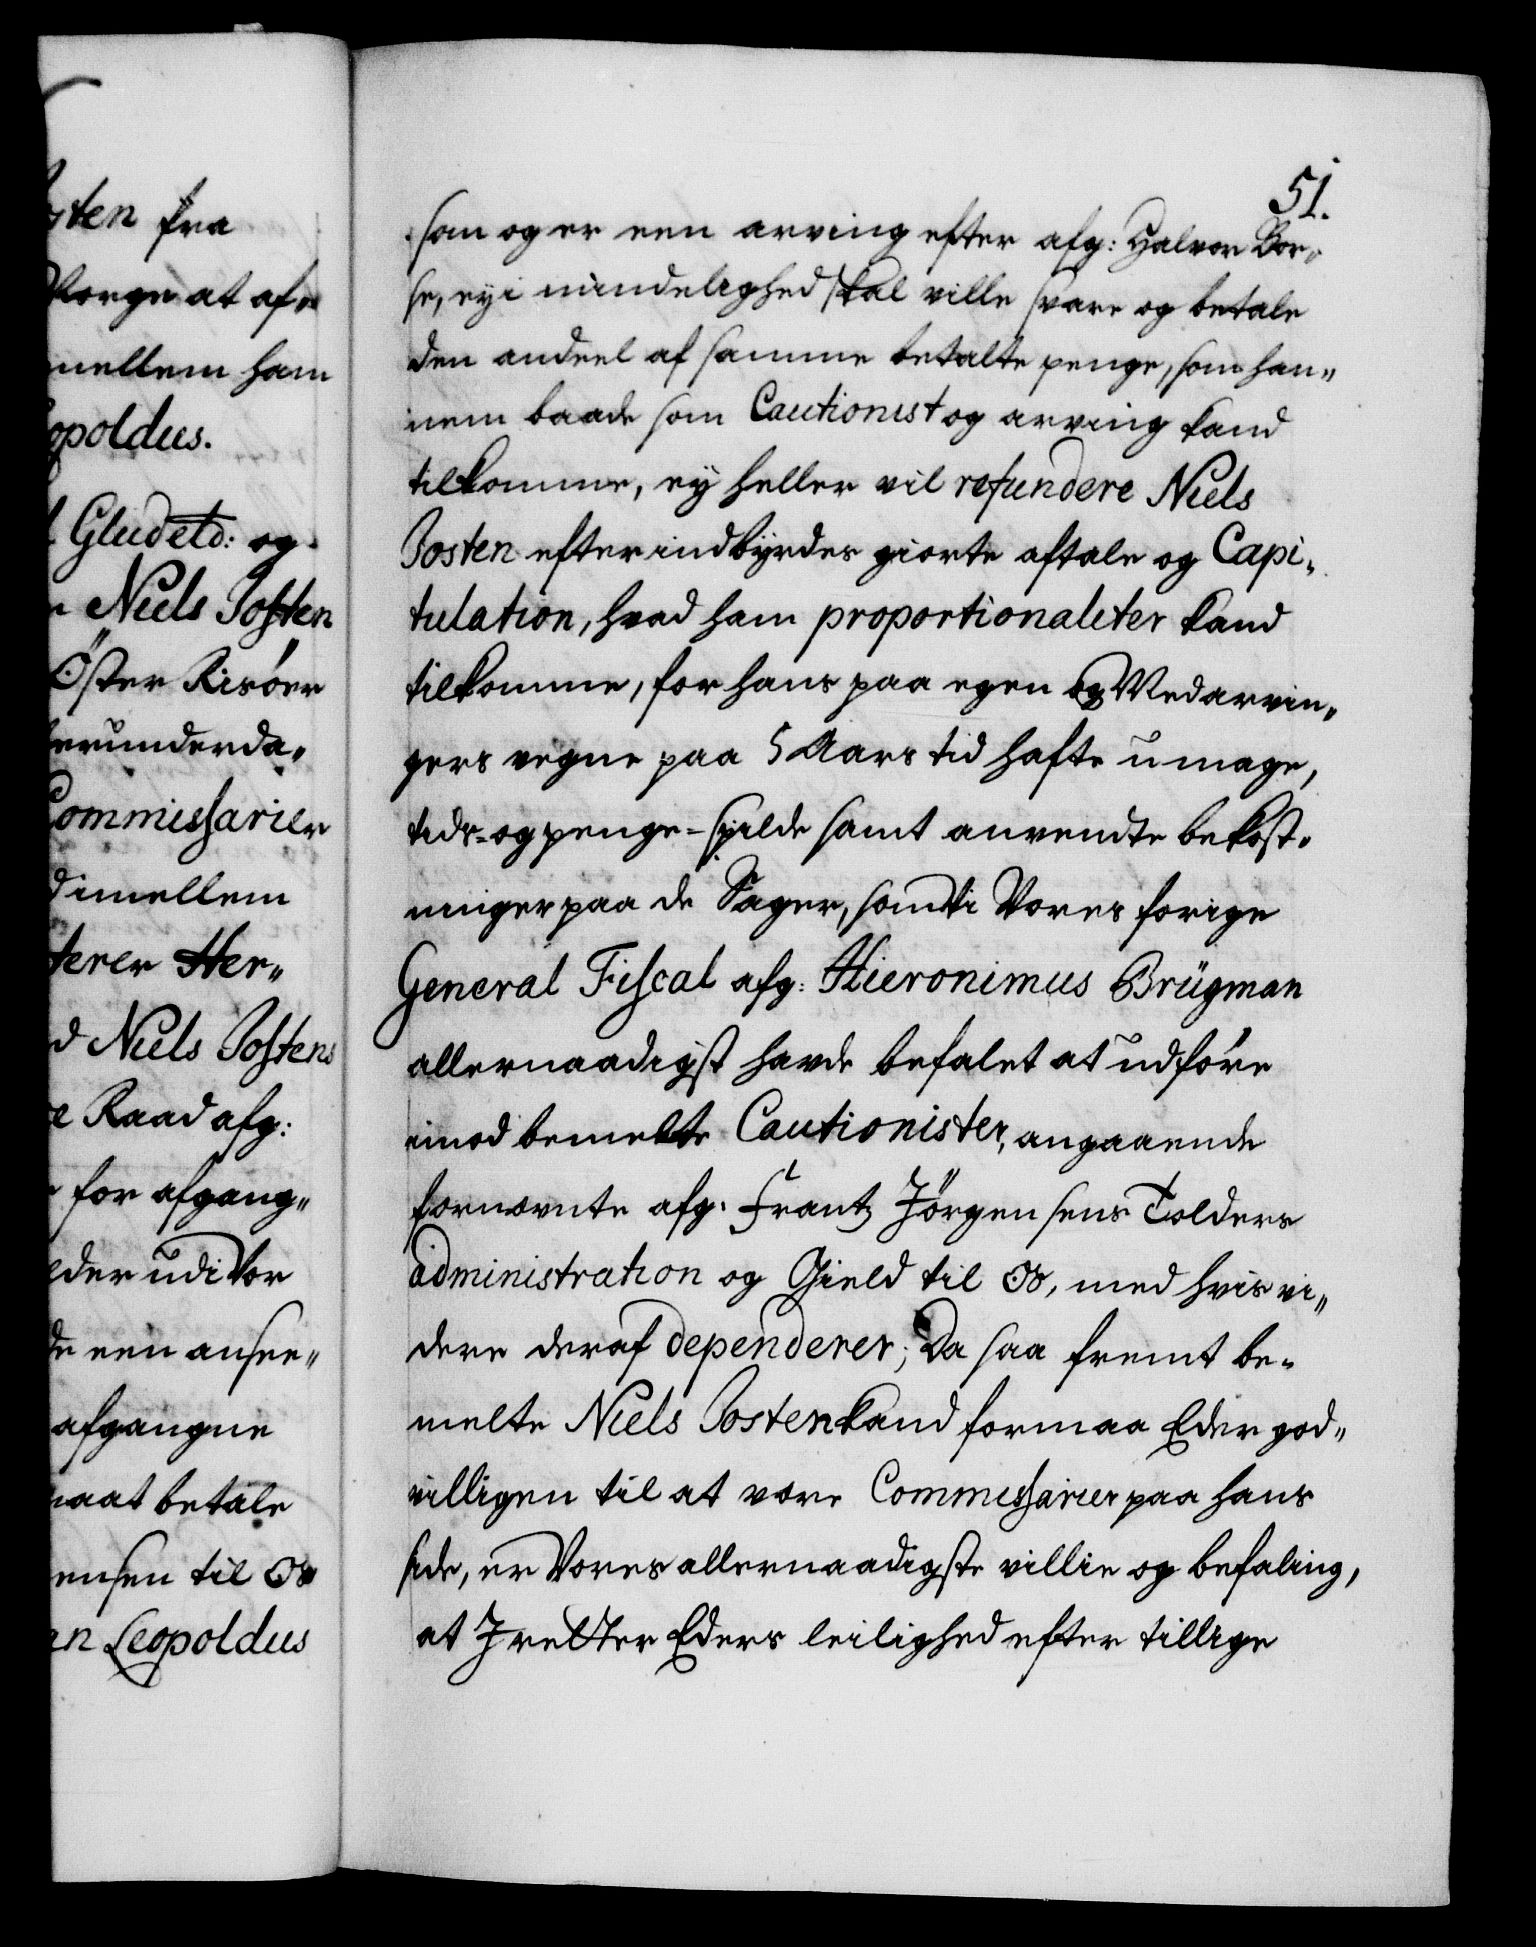 sten fra
Norge at af„
mellem ham
opoldus.
Glud etc: og
Niels Josten
Öster Risöer
herunderda„
Commissarier
dimellem
terer Her„
d Niels Jostens
e Raad afg:
for afgang„
lder udi Vor
de een ansee„
afgangne
maat betale
ensen til Os
an Leopoldus
51.
som og er een arving efter afg: Halvor Bor„
se, ey i mindelighed skal ville svare og betale
den andeel af samme betalte penge, som han„
nem baade som Cautionist og arving kand
tilkomme, ey heller vil refundere Niels
Josten efter indbyrdes giorte aftale og Capi„
tulation, hvad ham proportionaliter kand
tilkomme, for hans paa egen og Medarvin„
gers vegne paa 5 Aars tid hafte umage,
tids- og penge-spilde samt anvendte bekost„
ninger paa de Sager, som Vi Vores forige
General Fiscal afg: Hieronimus Brügman
allernaadigst havde befalet at udföre
imod bemelte Cautionister, angaaende
fornævnte afg: Frantz Jörgensens Tolders
administration og Gield til Os, med hvis vi„
dere deraf dependerer; Da saa fremt be„
melte Niels Josten kand formaa Eder god„
villigen til at være Commissarier paa hans
side, er Vores allernaadigste villie og befaling,
at J retter Eders leilighed efter tillige